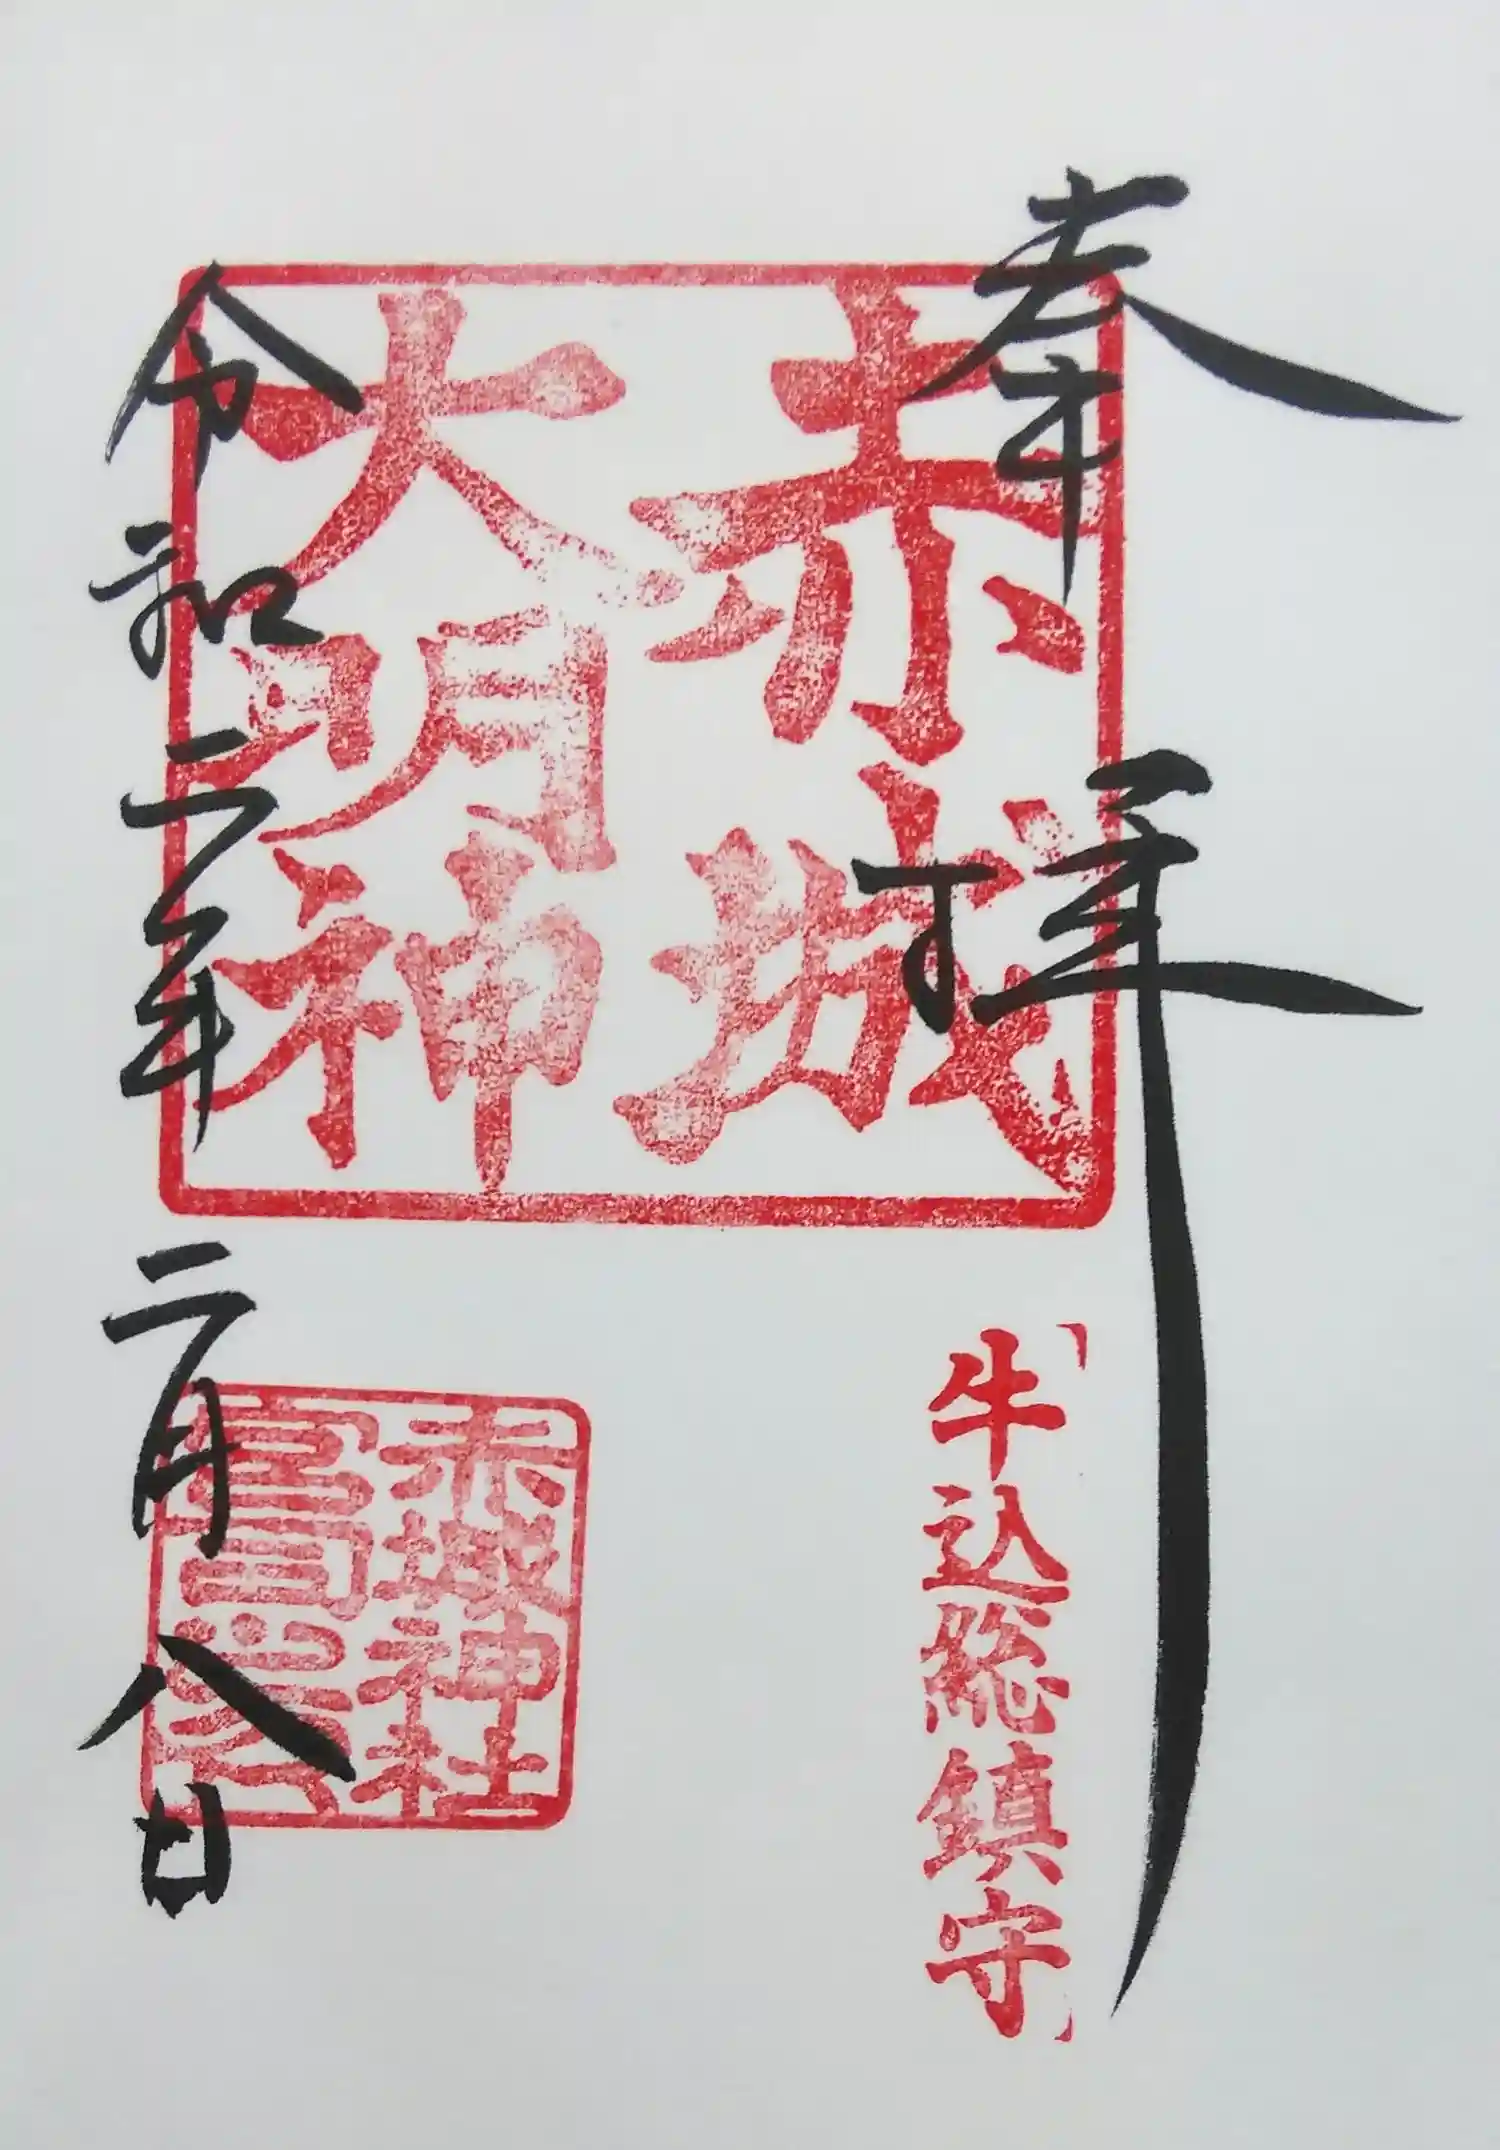 奉拝
赤城
大明神
牛込総鎮守
赤城神社
令和二年 二月八日